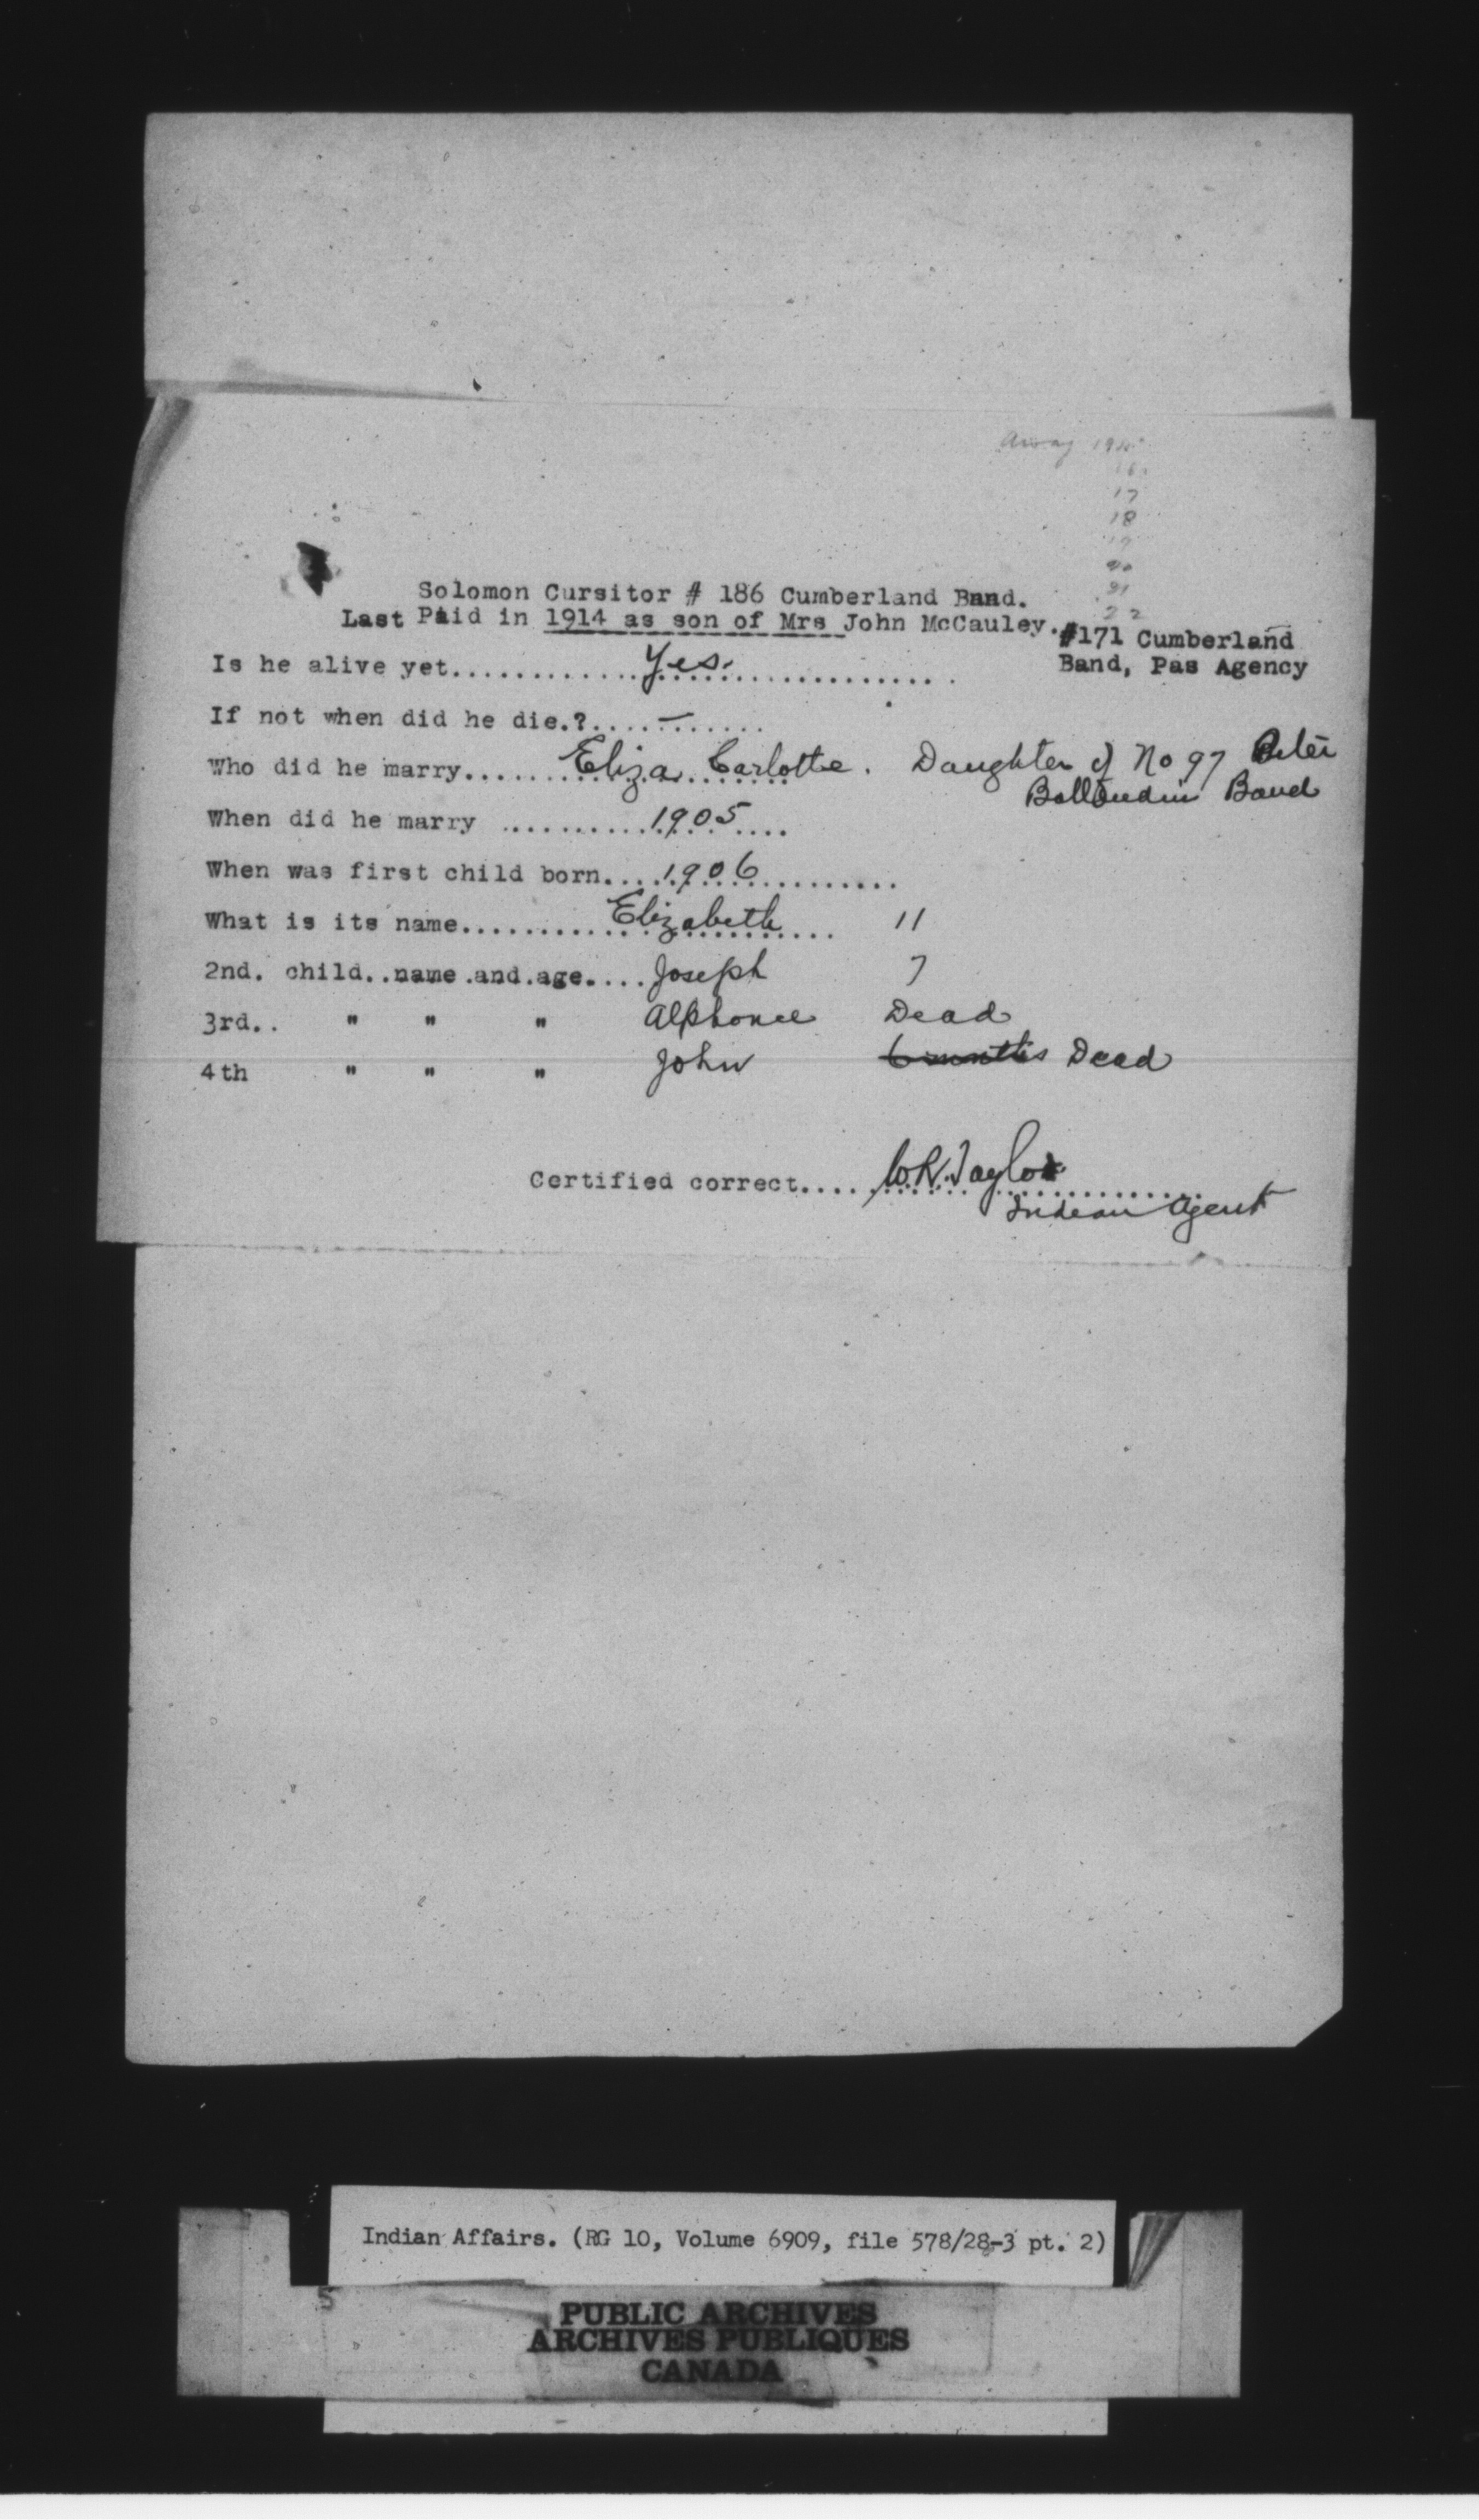 Away 1915
16
17
18
19
20
21
22
Solomon Cursitor # 186 Cumberland Band.
Last Paid in 1914 as son of Mrs John McCauley. #171 Cumberland
Band, Pas Agency
Is he alive yet............Yes.................
If not when did he die.?....—......
Who did he marry.......Eliza Carlotte. Daughter of No 97 Peter
Ballendin Band
When did he marry ..........1905....
When was first child born....1906...............
What is its name...........Elizabeth.... 11
2nd. child..name.and.age....Joseph 7
3rd.. " " " Alphonce Dead
4th " " " John 6 months Dead
Certified correct....W.R. Taylor..............
Indian Agent
Indian Affairs. (RG 10, Volume 6909, file 578/28-3 pt. 2)
5
PUBLIC ARCHIVES
ARCHIVES PUBLIQUES
CANADA